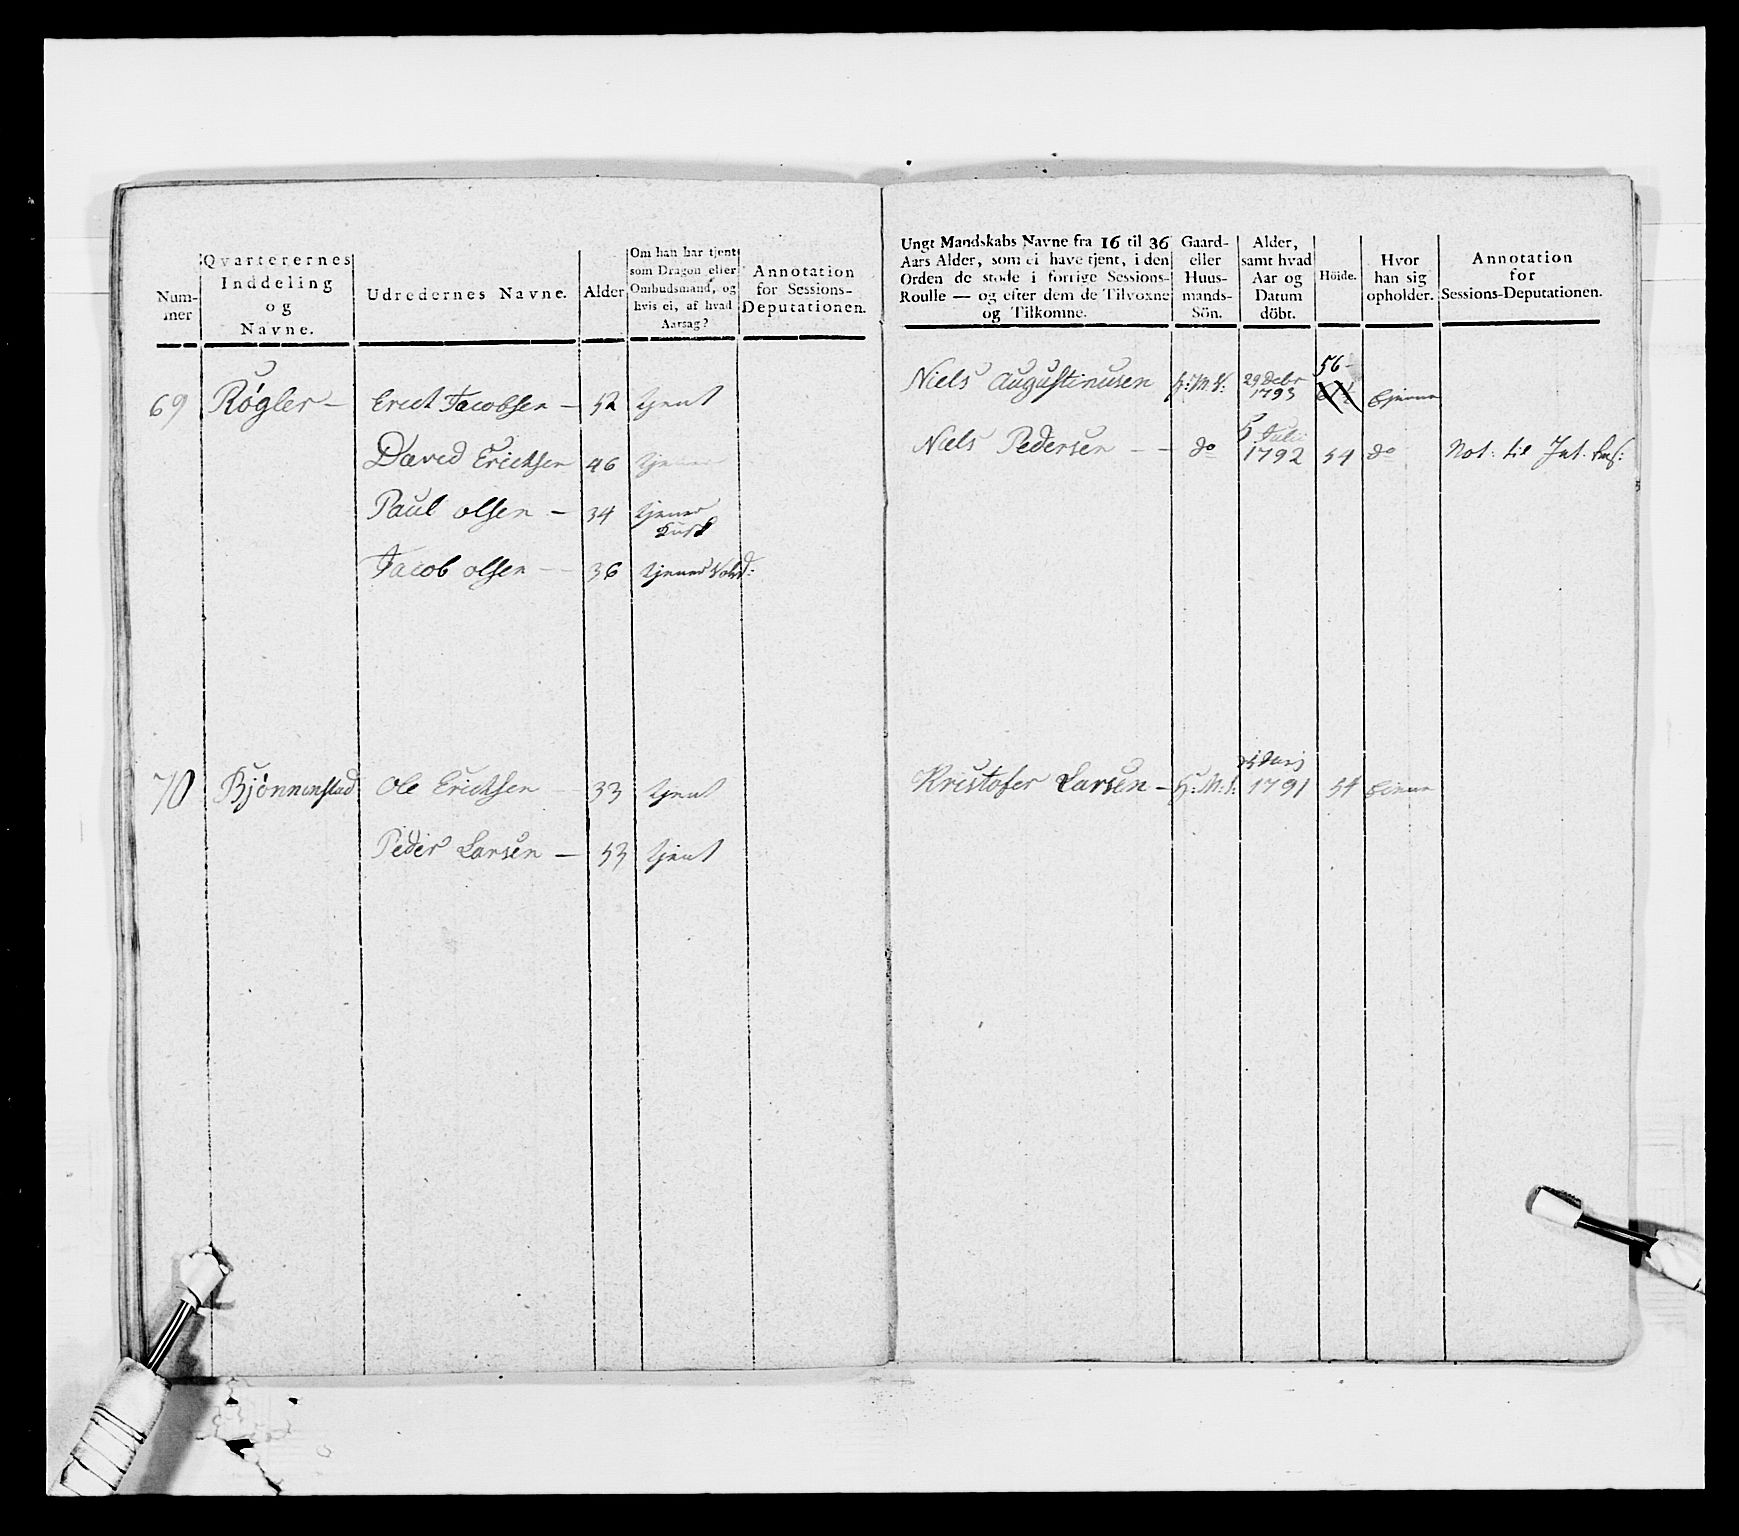 Num-
mer
Qvarterernes
Inddeling
og
Navne.
Udredernes Navne.
Alder
Om han har tjent
som Dragon eller
Ombudsmand, og
hvis ei, af hvad
Aarsag?
Annotation
for Sessions-
Deputationen.
69 Røgler — Erich Jacobsen — 52 tjent
David Erichsen 46 tjener
Paul olsen — 34 tjener
Jacob olsen — 36 tjener
70 Bjönnenstad Ole Erichsen — 33 tjent
Peder Larsen — 53 tjent
Ungt Mandskabs Navne fra 16 til 36
Aars Alder, som ei have tjent, i den
Orden de stode i forrige Sessions-
Roulle — og efter dem de Tilvoxne
og Tilkomne.
Gaard-
eller
Huus-
mands-
Sön.
Alder,
samt hvad
Aar og
Datum
döbt.
Höide.
Hvor
han sig
opholder.
Annotation
for
Sessions-Deputationen.
56
Niels Augustinusen H:M.S: 29 Debr
1793
5 Julii
Niels Pedersen — — do 1792 54 do Not: til Jnt.
Kristofer Larsen — H:M:S: 1791 54